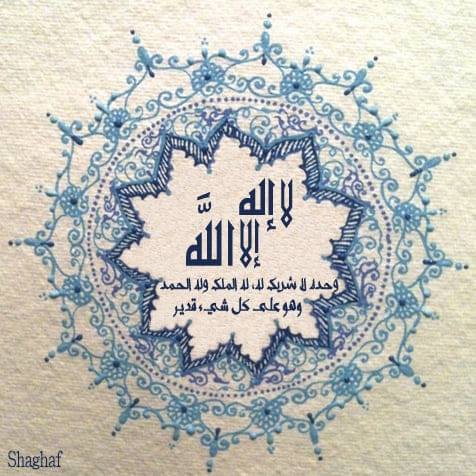 لا إله
إلا الله
وحده لا شريك له، له الملك وله الحمد
وهو على كل شيء قدير
Shaghaf